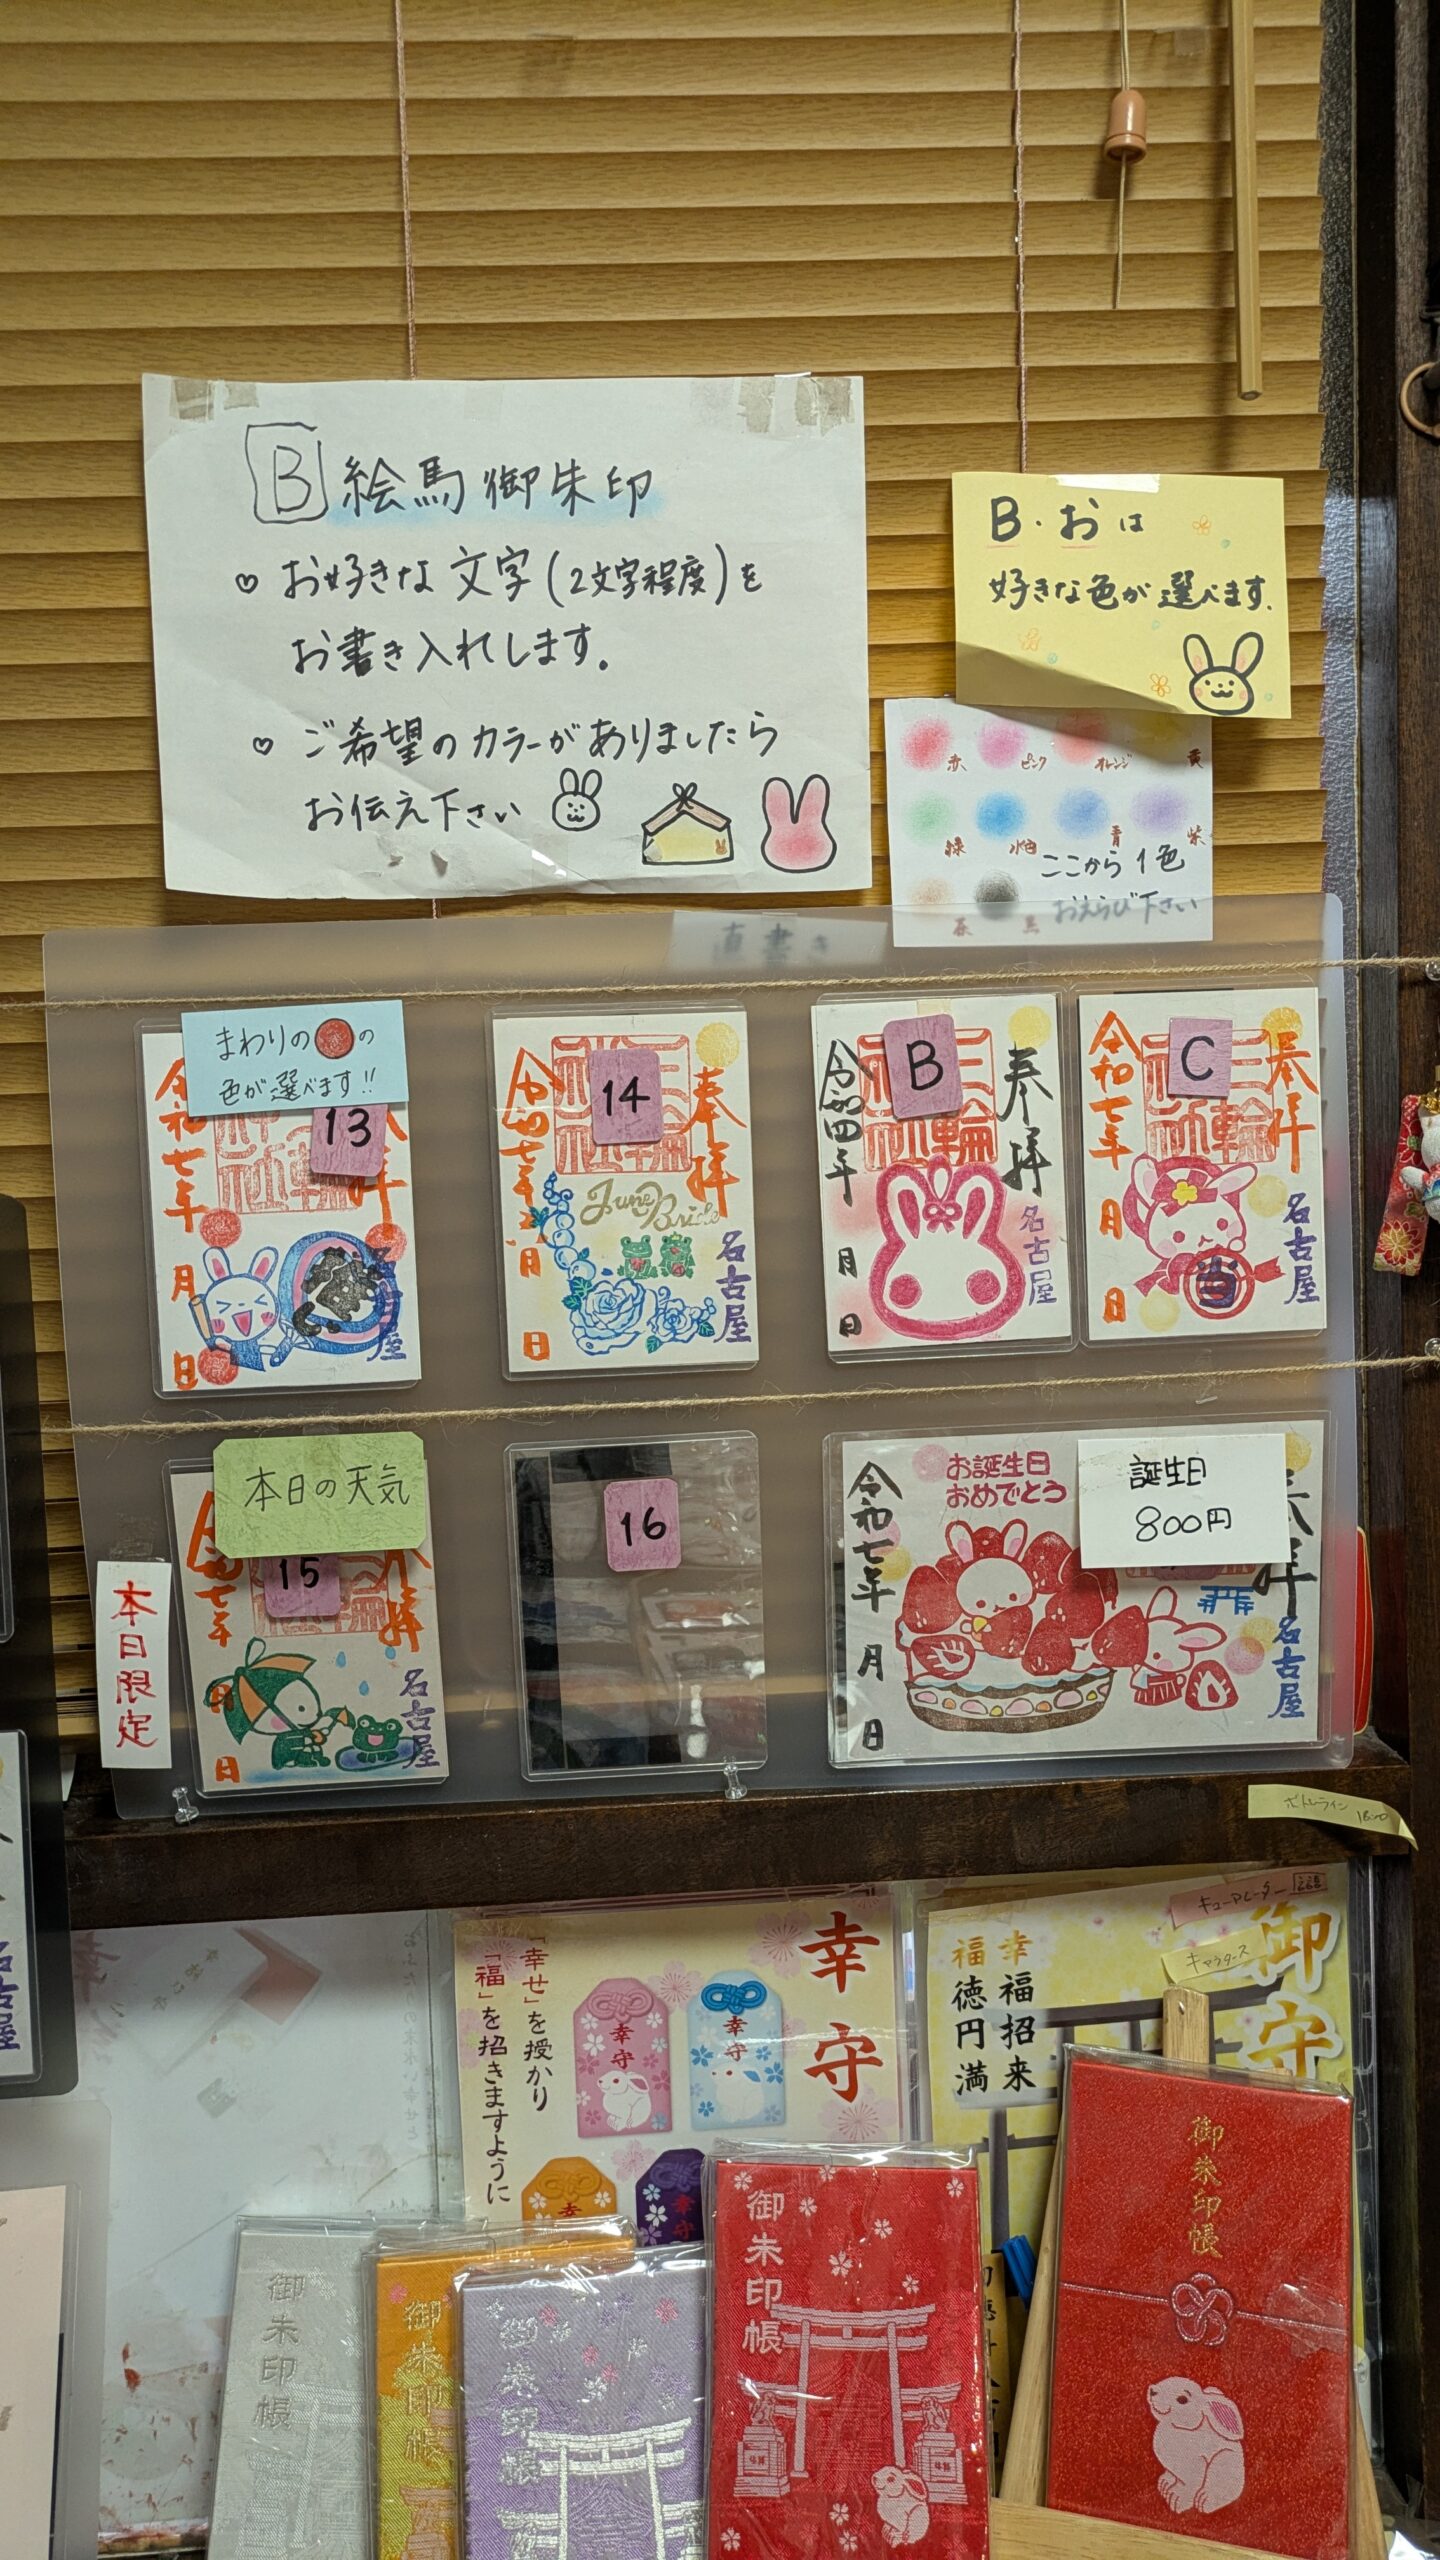 B 絵馬御朱印
♡ お好きな文字(2文字程度)を
お書き入れします。
♡ ご希望のカラーがありましたら
お伝え下さい
B・おは
好きな色が選べます。
赤 ピンク オレンジ 黄
緑 水色 青 紫
茶 黒
ここから1色
おえらび下さい
直書き
まわりの の
色が選べます!!
13
令和七年
月
日
名古屋
14
奉拝
令和七年
月
日
June Bride
名古屋
B
奉拝
三輪
令和四年
月
日
名古屋
C
奉拝
三輪
令和七年
月
日
当
名古屋
本日の天気
15
本日限定
日
名古屋
16
お誕生日
おめでとう
誕生日
800円
令和七年
月
日
名古屋
ボトムライン 18:00
幸守
「幸せ」を授かり
「福」を招きますように
幸守
幸守
幸
幸守
キューアレーター
キャラタース
御守
幸福招来
福徳円満
御朱印帳
御朱印帳
御朱印帳
御朱印帳
御朱印帳